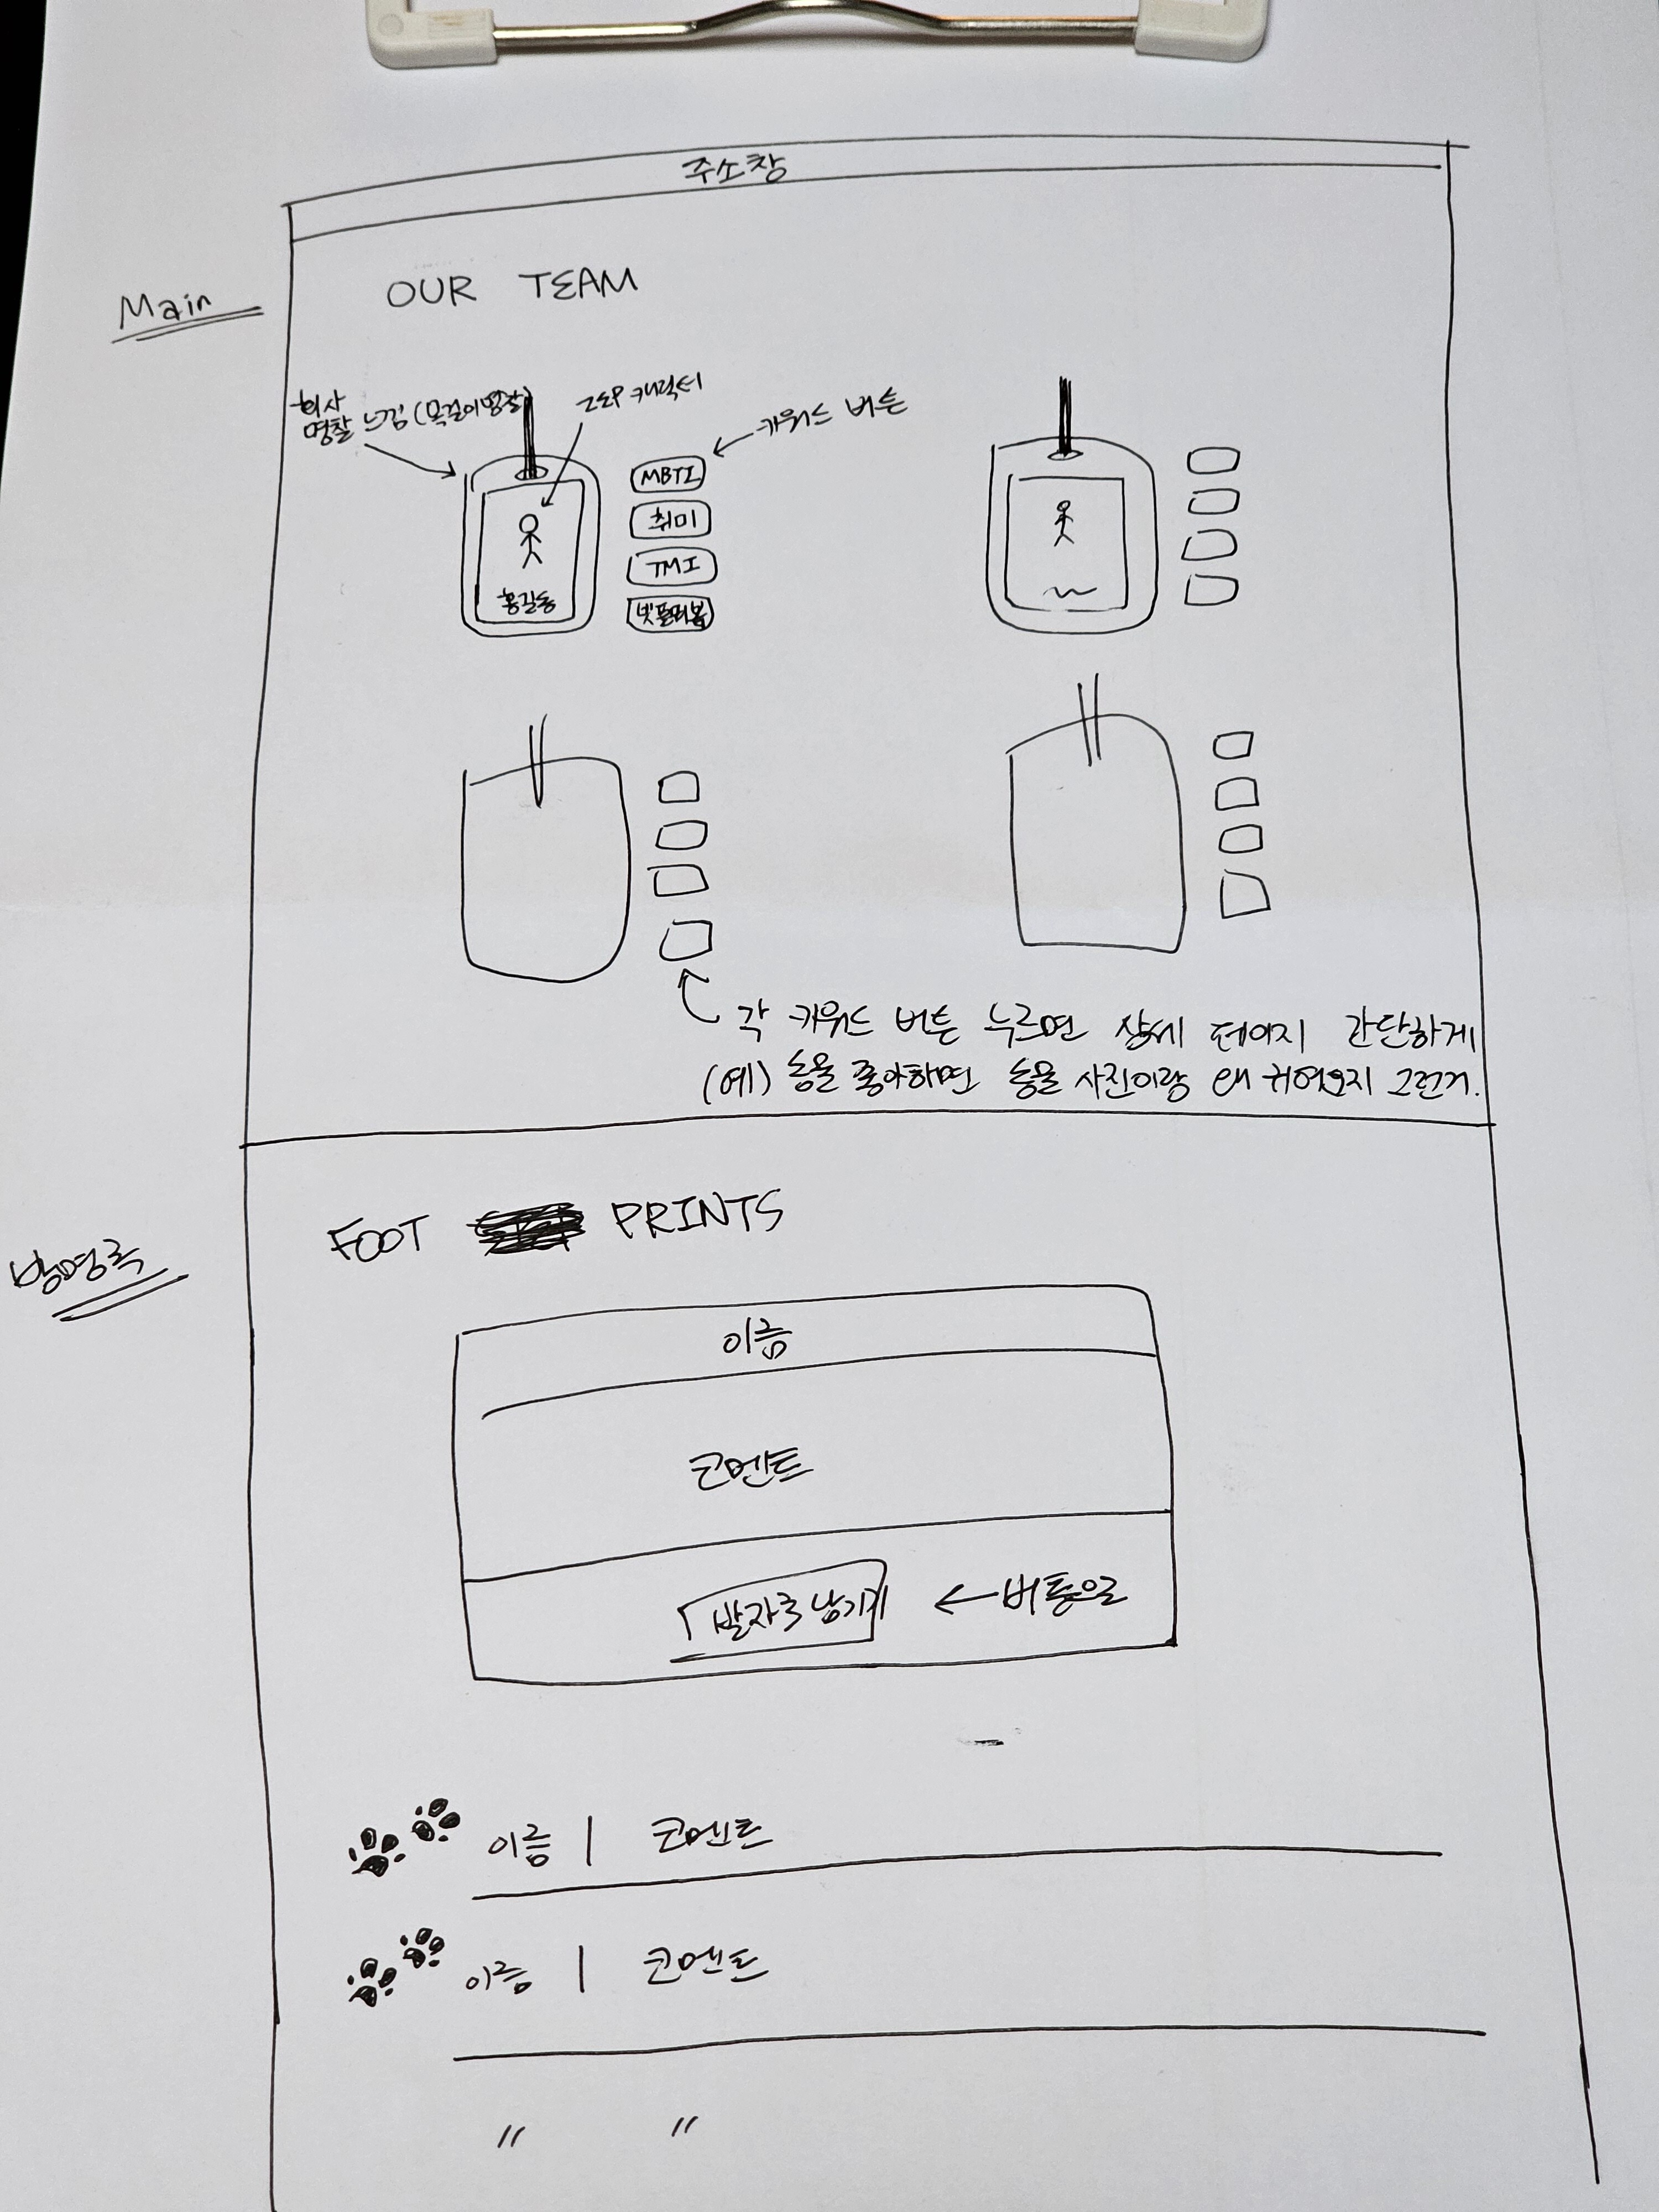 주소창
Main
OUR TEAM
회사
명찰 느낌 (목걸이명찰)
ZEP 캐릭터
키워드 버튼
MBTI
취미
TMI
홍길동
각 키워드 버튼 누르면 상세 페이지 간단하게
(예) 동물 좋아하면 동물 사진이랑 왜 귀여운지 그런거.
방명록
FOOT PRINTS
이름
코멘트
발자국 남기기
← 버튼으로
이름 | 코멘트
이름 | 코멘트
〃 〃